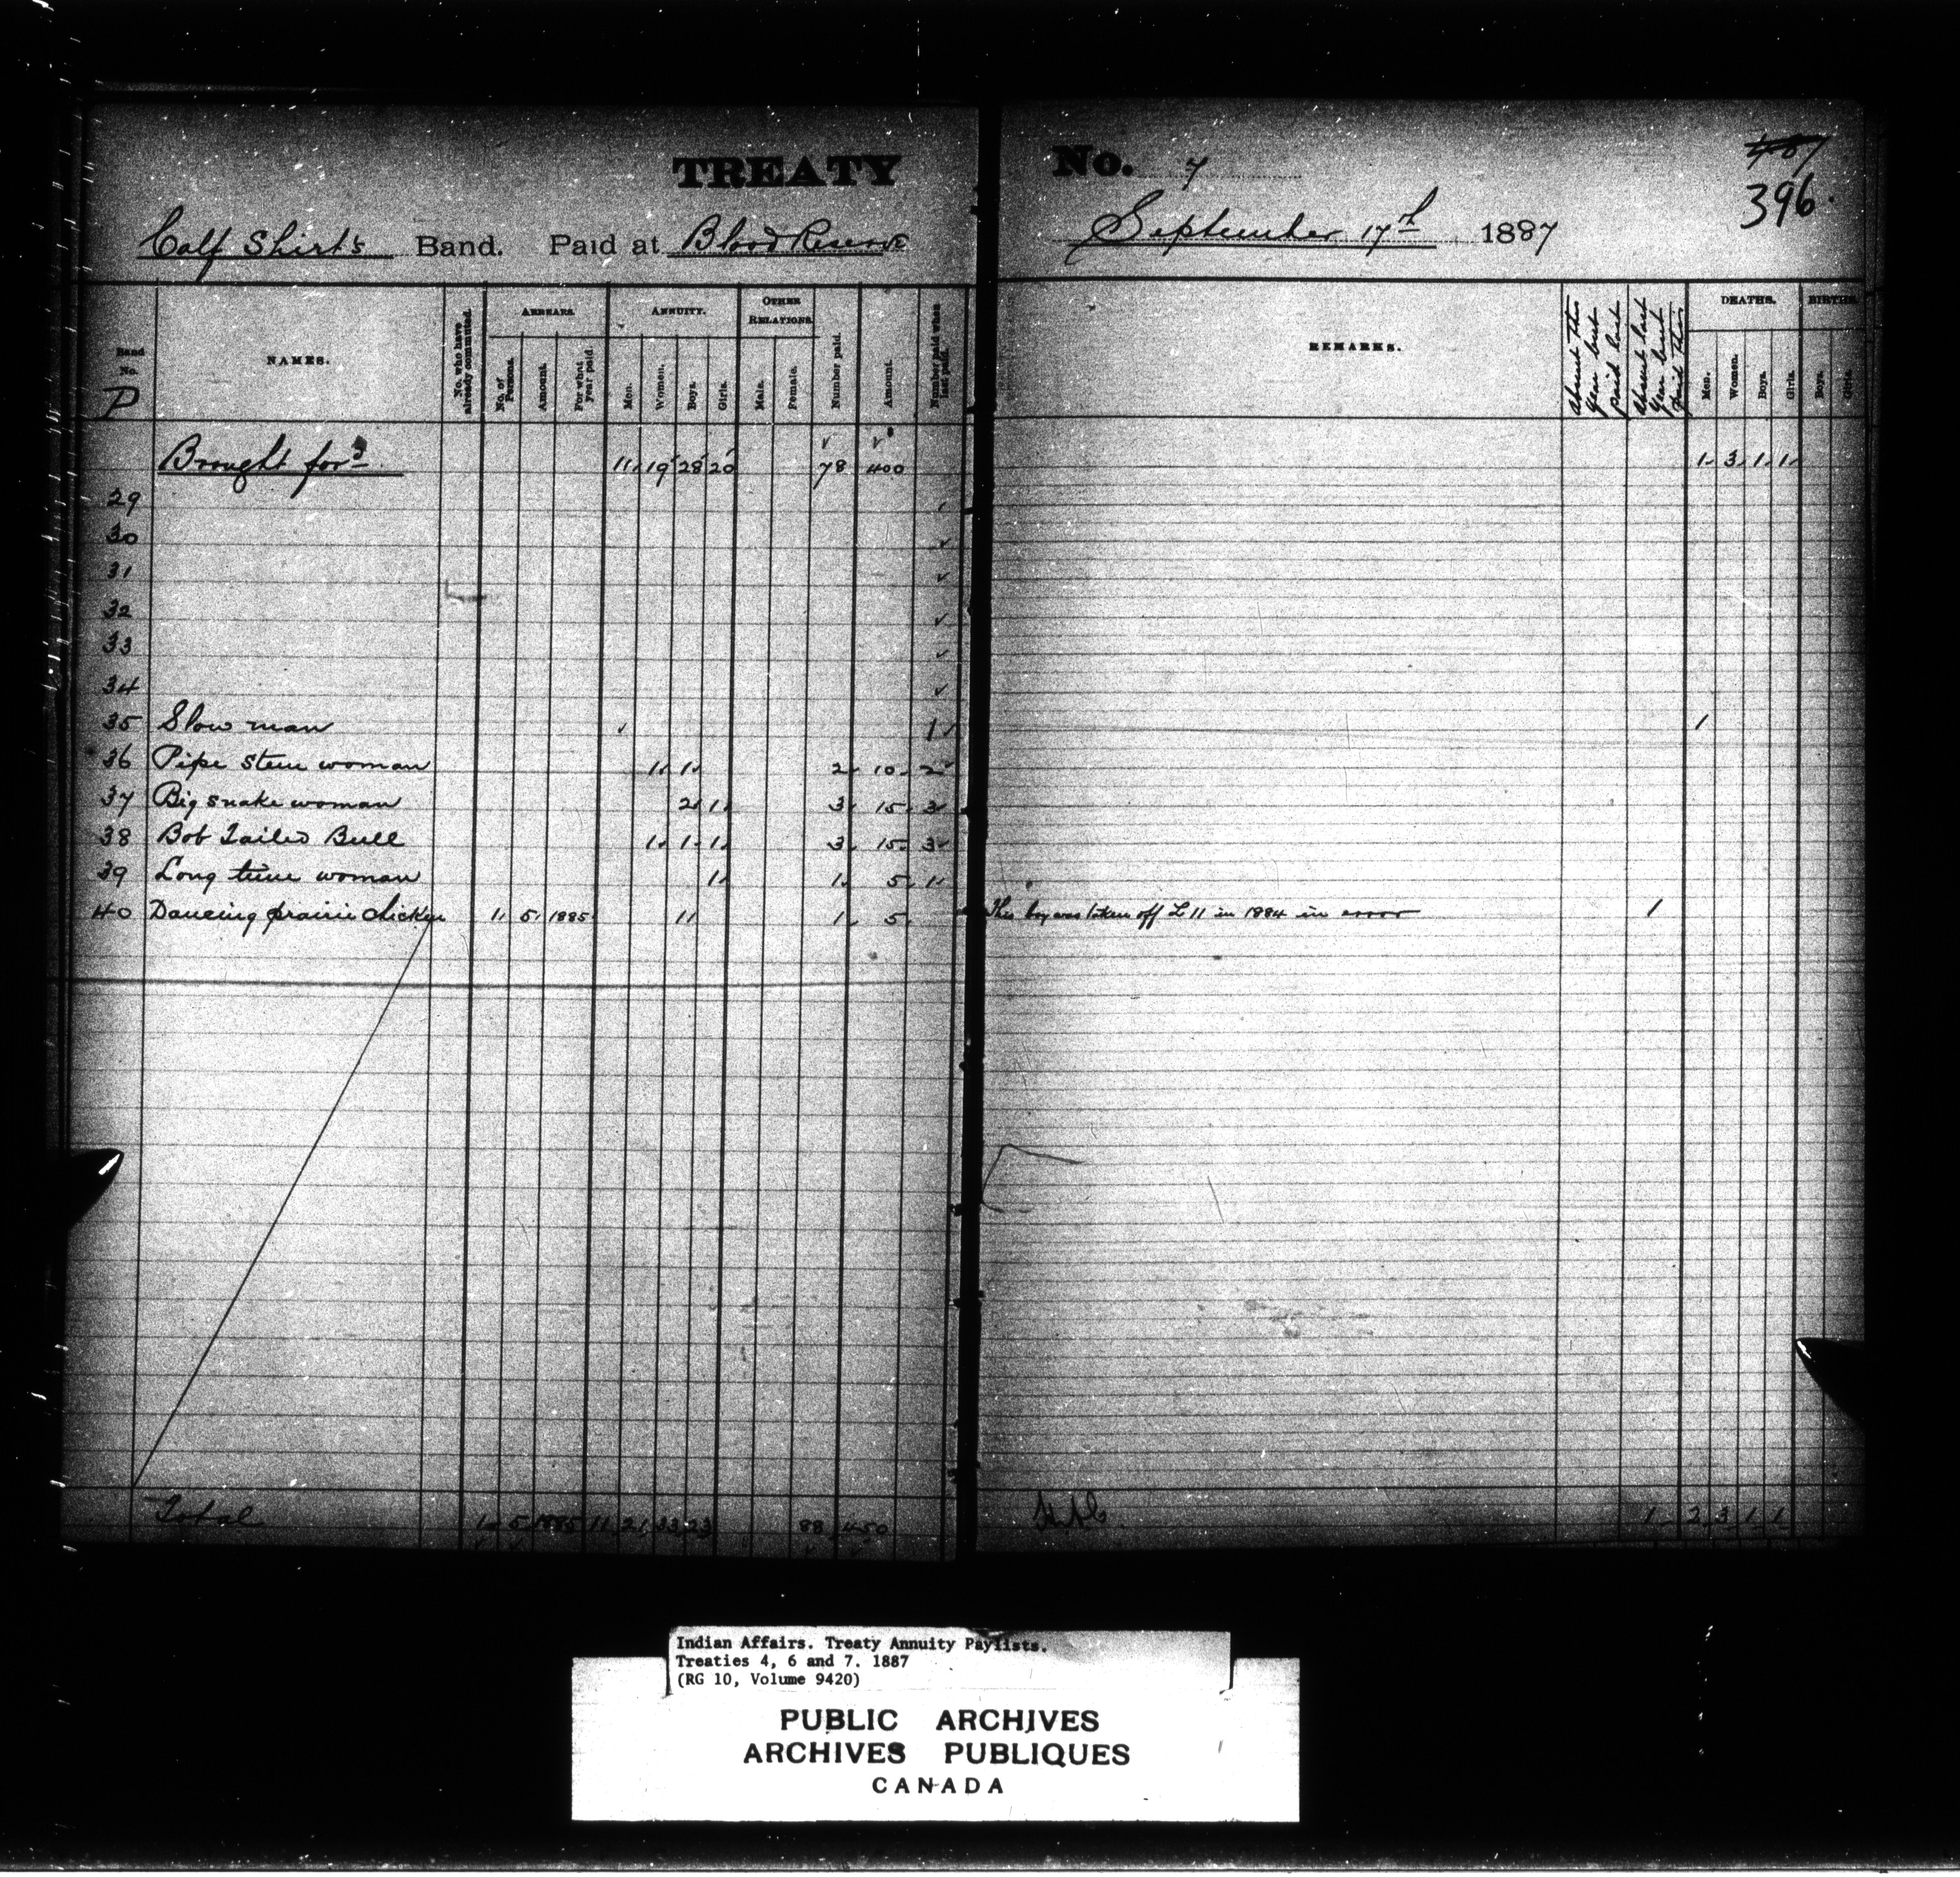 TREATY No. 7
487
396.
Calf Shirt's Band. Paid at Blood Reserve September 17th 1887
Band No. NAMES. No. who have already commuted. ARREARS. ANNUITY. OTHER RELATIONS. Number paid. Amount. Number paid when last paid. REMARKS. Absent this Year but Paid last Absent last Year but Paid this DEATHS. BIRTHS.
P No. of Persons. Amount. For what year paid. Men. Women. Boys. Girls. Male. Female. Men. Women. Boys. Girls. Boys. Girls.
Brought for^d 11 19 28 20 78 400 1 3 1 1
29
30
31
32
33
34
35 Slow man 1 1
36 Pipe stem woman 1 1 2 10 2
37 Big snake woman 2 1 3 15 3
38 Bob Tailed Bull 1 1 1 3 15 3
39 Long time woman 1 1 5 1
40 Dancing prairie chicken 1 5 1885 1 1 5 This boy was taken off L 11 in 1884 in error 1
Total 1 5 1885 11 21 33 23 88 450 1 2 3 1 1
Indian Affairs. Treaty Annuity Paylists.
Treaties 4, 6 and 7. 1887
(RG 10, Volume 9420)
PUBLIC ARCHIVES
ARCHIVES PUBLIQUES
CANADA